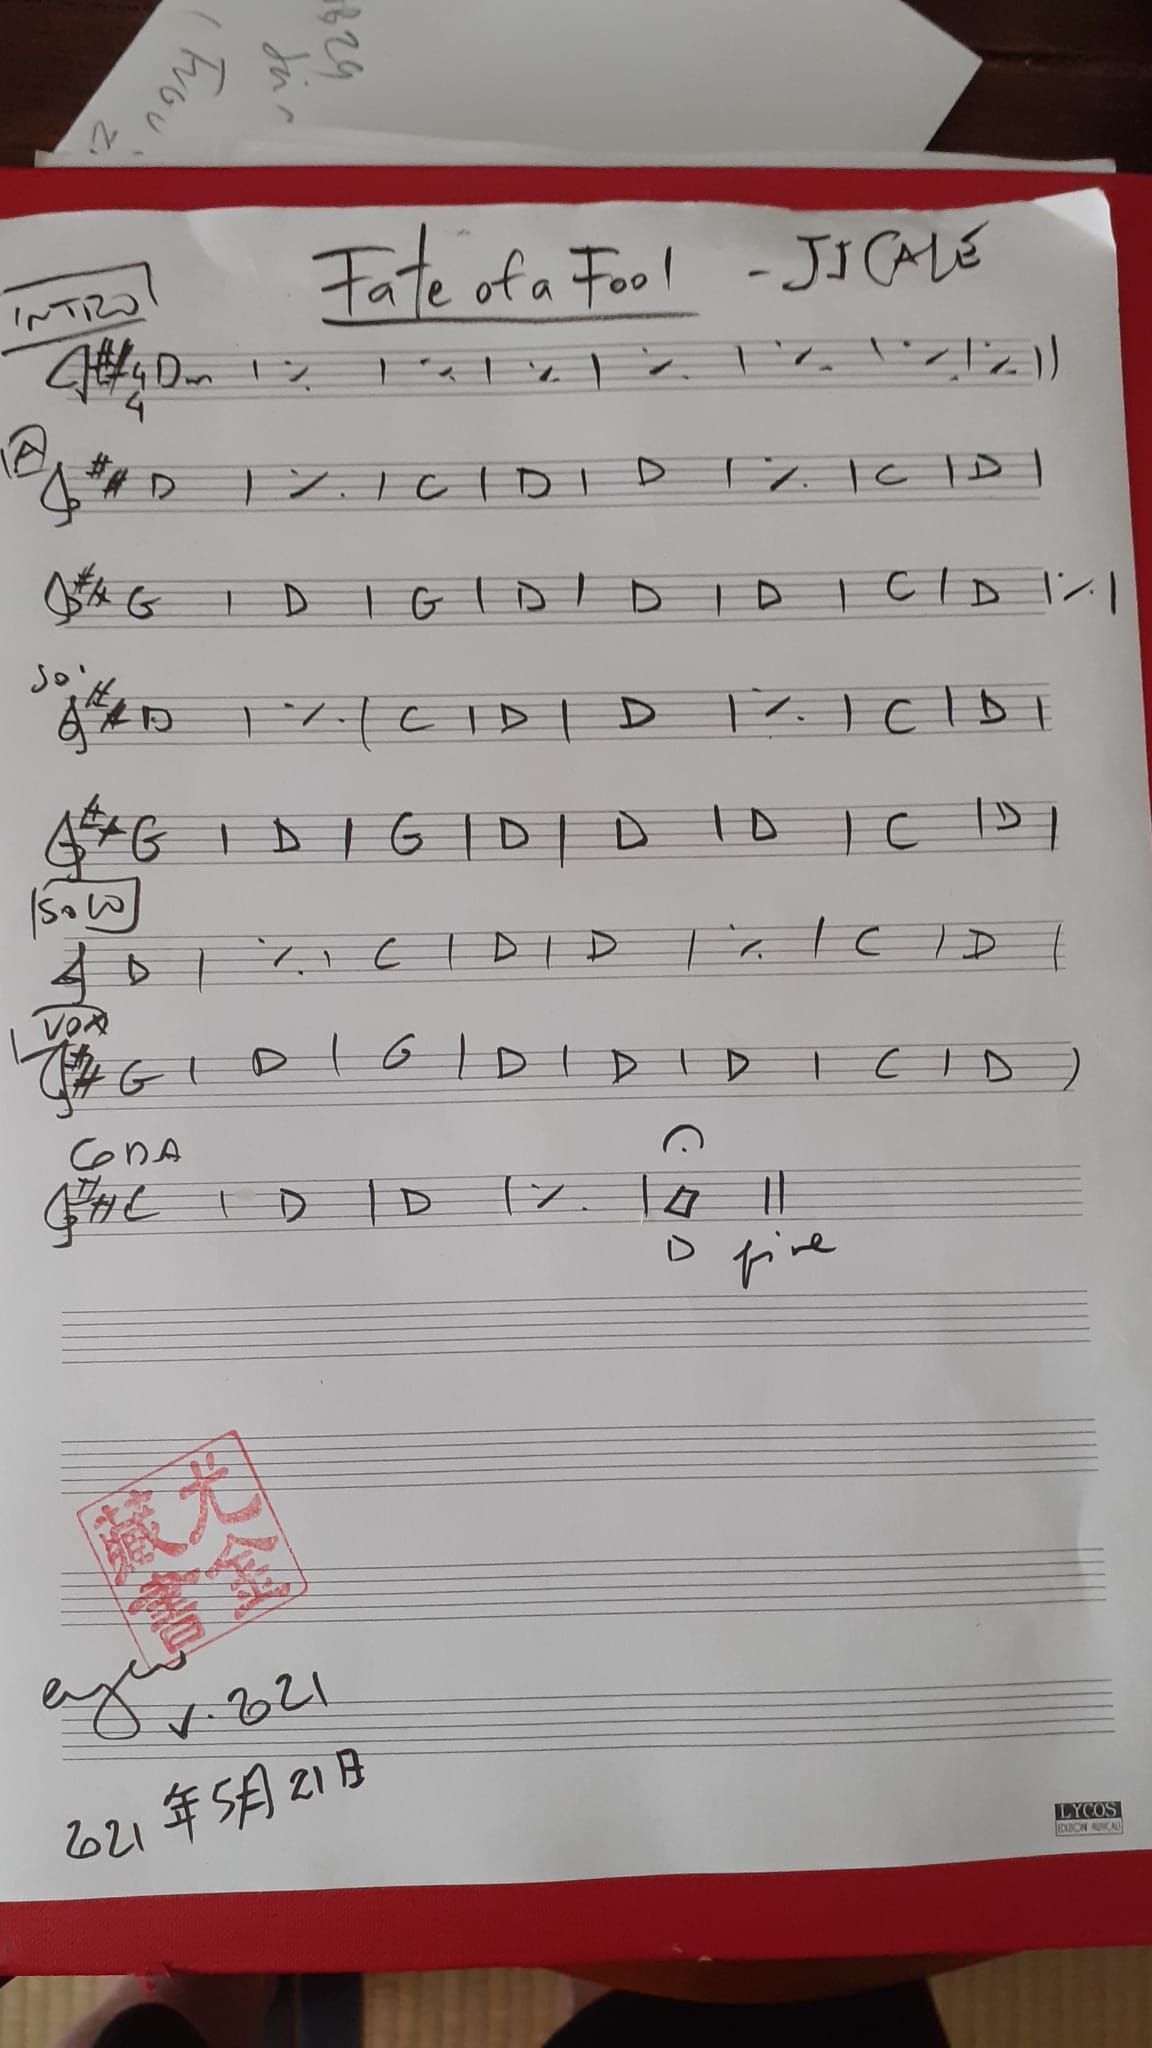 Fate of a Fool - JJ CALE
INTRO
# # 4 4 Dm | ٪ | ٪ | ٪ | ٪ | ٪ | ٪ | ٪ ||
A
# # D | ٪ | C | D | D | ٪ | C | D |
# # G | D | G | D | D | D | C | D | ٪ |
# # D | ٪ | C | D | D | ٪ | C | D |
# # G | D | G | D | D | D | C | D |
SOLO
D | ٪ | C | D | D | ٪ | C | D |
VOX
# # G | D | G | D | D | D | C | D |
CODA
# # C | D | D | ٪ | ||
D fine
尤金
藏書
v. 2021
2021年5月21日
LYCOS
EDIZIONI MUSICALI